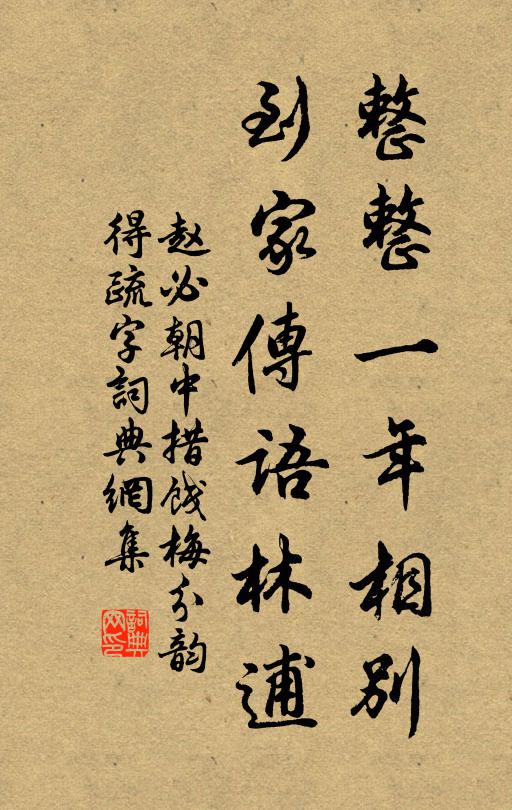 整整一年相别
到家傳語林逋
赵必朝中措饯梅分韵
得疏字詞典網集
詞典
网印